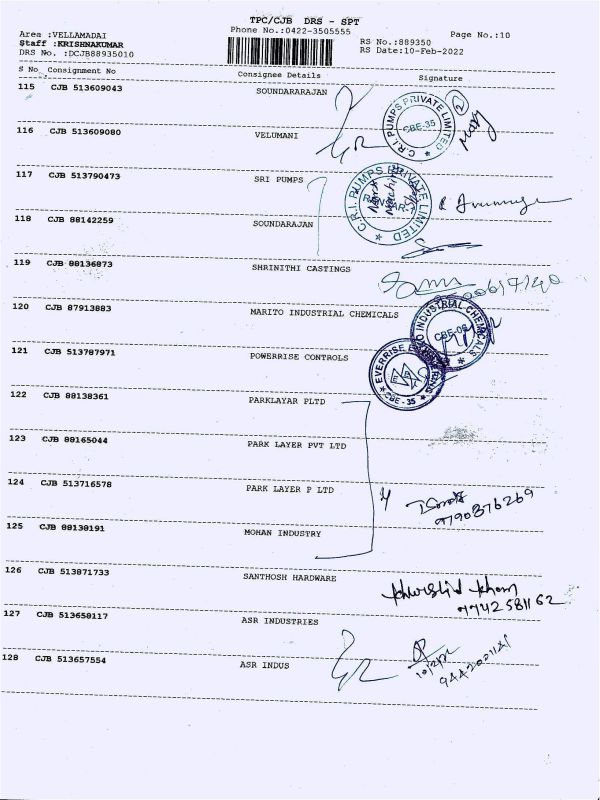 TPC/CJB DRS - SPT
Area :VELLAMADAI
Phone No.:0422-3505555
Page No.:10
Staff :KRISHNAKUMAR
RS No.:889350
DRS No. :DCJB88935010
RS Date:10-Feb-2022
S No Consignment No Consignee Details Signature
115 CJB 513609043 SOUNDARARAJAN
C.R.I. PUMPS PRIVATE LIMITED
CBE-35
2
116 CJB 513609080 VELUMANI
117 CJB 513790473 SRI PUMPS
C.R.I. PUMPS PRIVATE LIMITED
118 CJB 88142259 SOUNDARAJAN
119 CJB 88136873 SHRINITHI CASTINGS
120 CJB 87913883 MARITO INDUSTRIAL CHEMICALS
INDUSTRIAL CHEMICALS
121 CJB 513787971 POWERRISE CONTROLS
EVERRISE
CBE - 35
122 CJB 88138361 PARKLAYAR PLTD
123 CJB 88165044 PARK LAYER PVT LTD
124 CJB 513716578 PARK LAYER P LTD
9790876269
125 CJB 88138191 MOHAN INDUSTRY
126 CJB 513871733 SANTHOSH HARDWARE
khurshid khan
9742581162
127 CJB 513658117 ASR INDUSTRIES
128 CJB 513657554 ASR INDUS